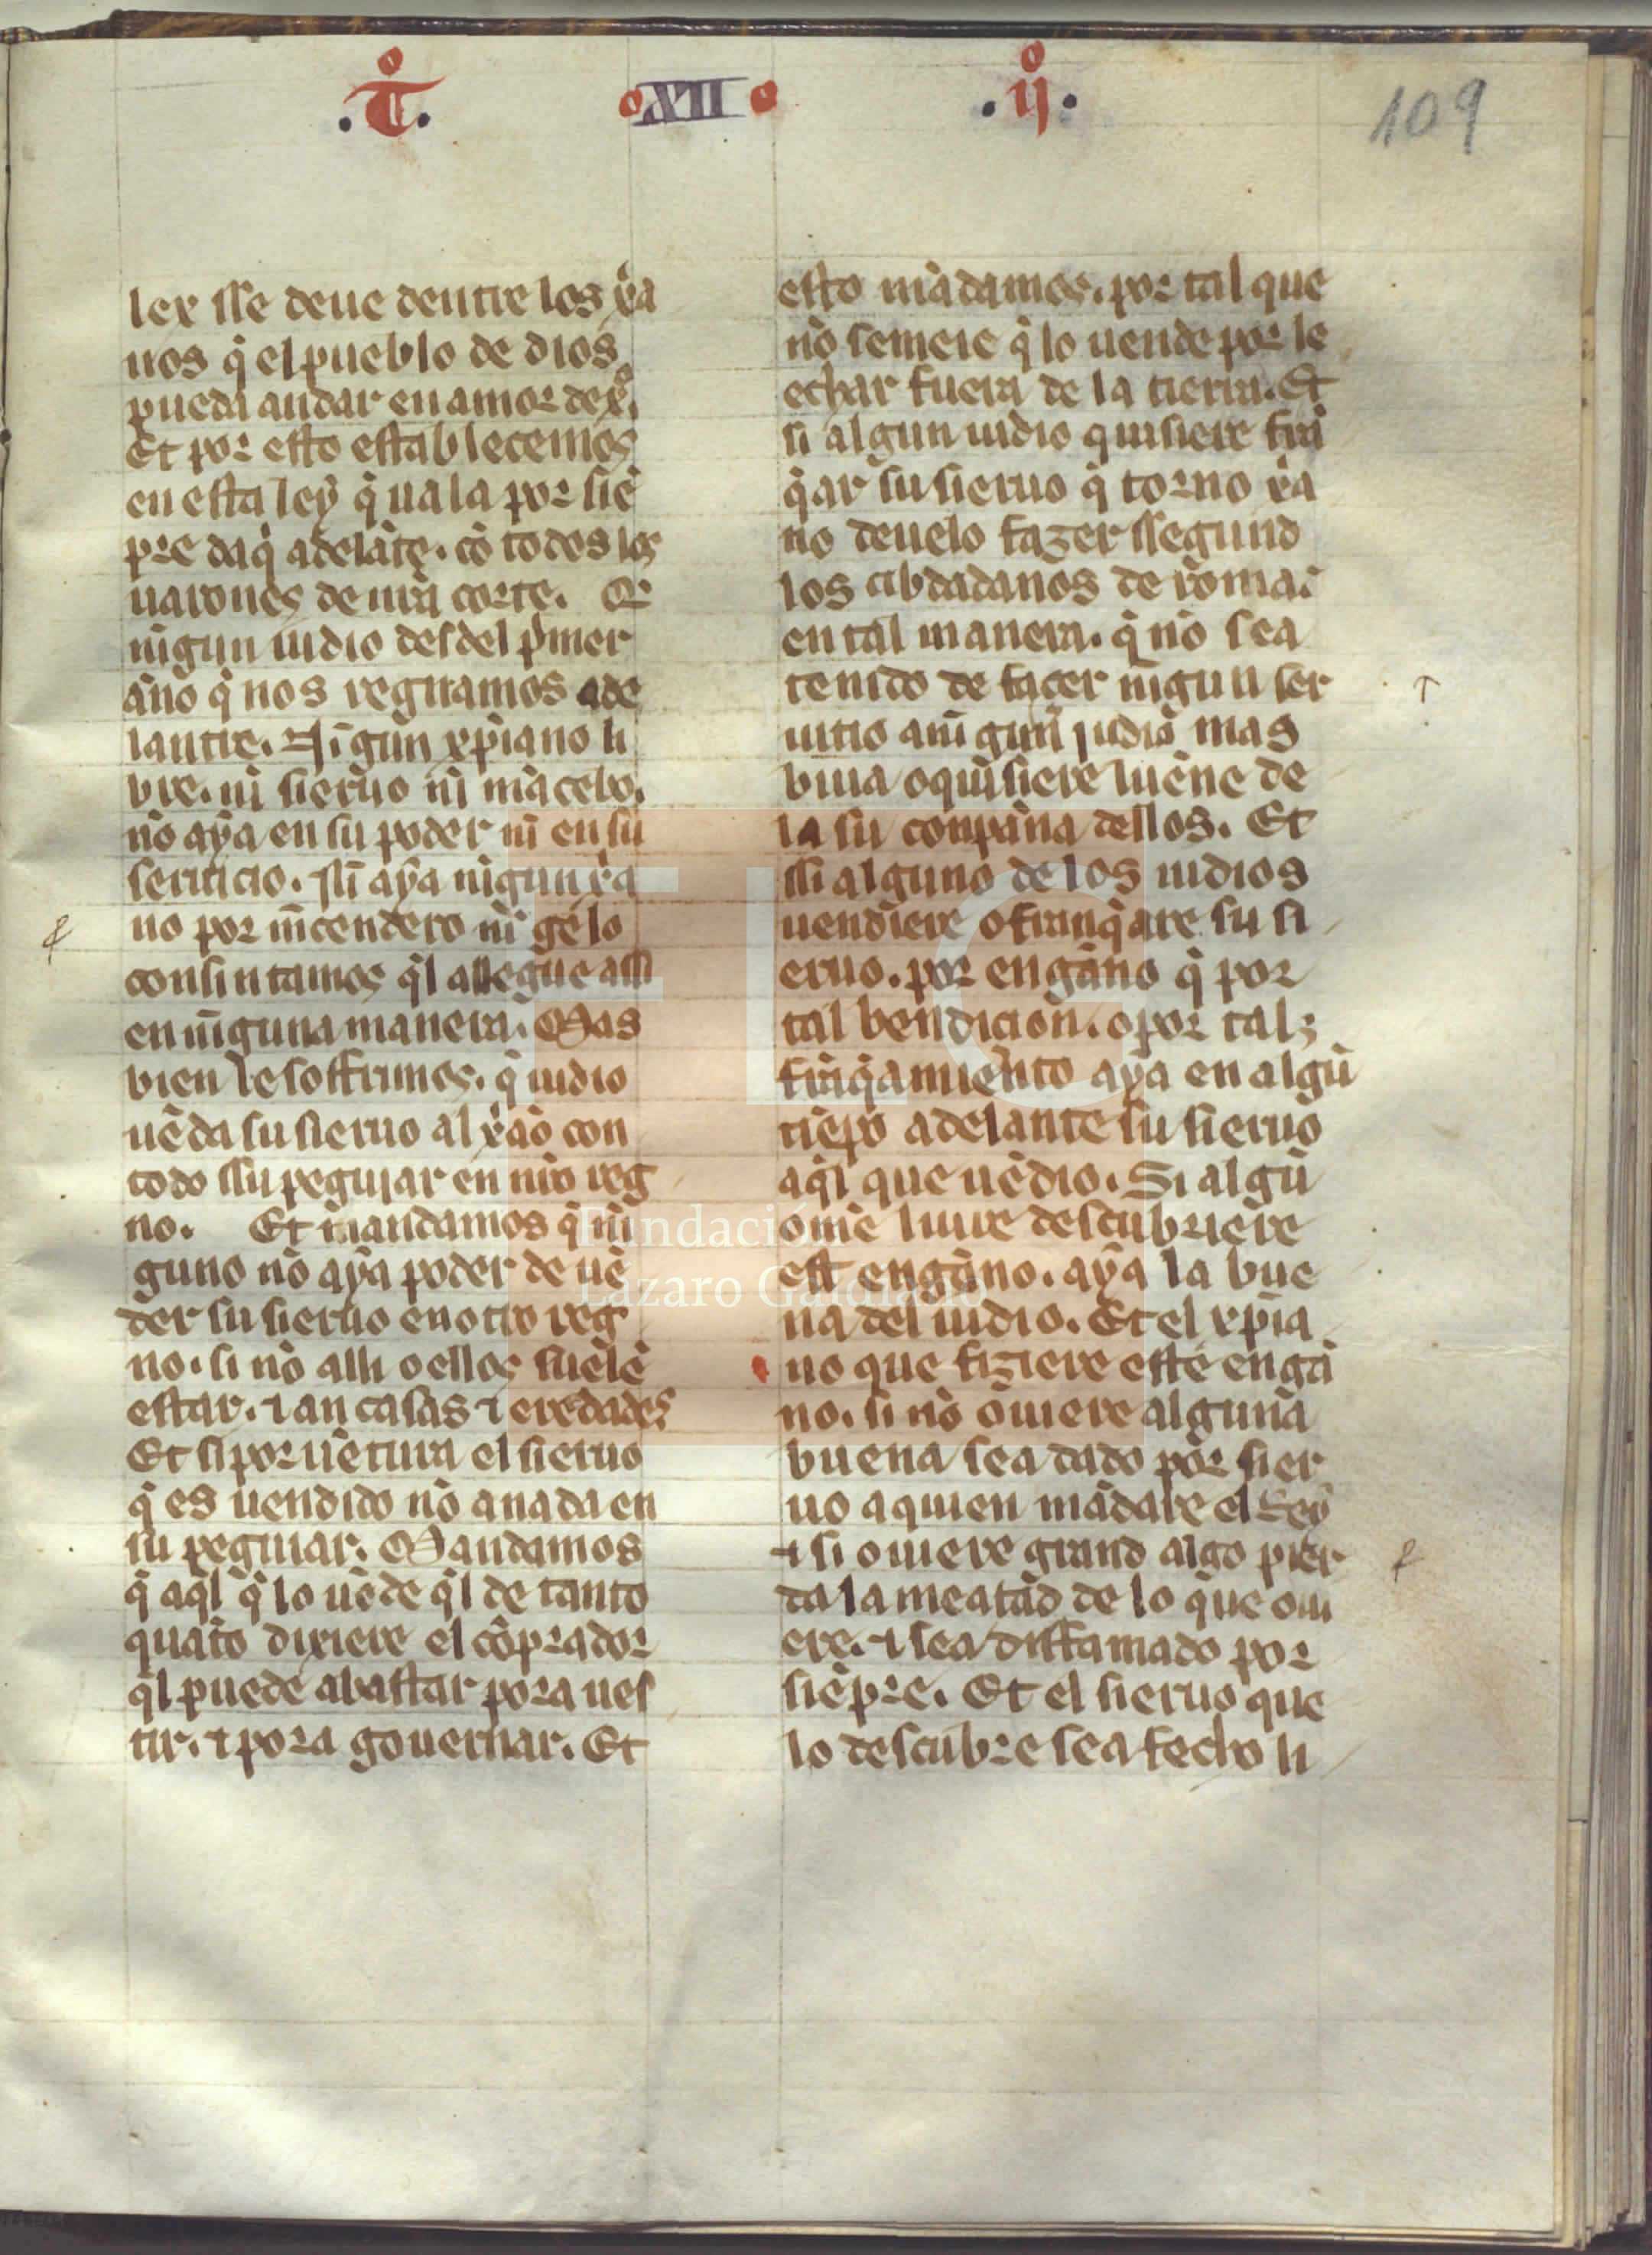 .T. XII .ij. 109
ler sse deue dentre los xr̃a
nos q̃ el pueblo de dios
pueda andar en amor de xº.
Et por esto establecemos
en esta ley q̃ uala por siẽ
pre daq̃ adelãte. cõ todos los
uarones de nr̃a corte. Q̃
nigun iudio desdel p̃mer
año q̃ nos regnamos ade
lantre. Nĩgun xp̃iano li
bre. ni sieruo ni mãcebo.
nõ aya en su poder nĩ en su
seruicio. nĩ aya nĩgun xr̃a
no por mercendero nĩ ge lo
consintamos q̃l allegue assi
en nĩguna manera. Mas
bien le soffrimos. q̃ iudio
uẽda su sieruo al xr̃ão con
todo ssu pegujar en nr̃o reg
no. Et mandamos q̃ nĩ
guno nõ aya poder de uẽ
der su sieruo en otro reg
no. si nõ alli o ellos suelẽ
estar. ⁊ an casas ⁊ eredades.
Et si por uẽtura el sieruo
q̃ es uendido nõ a nada en
su peguiar. Mandamos
q̃ aq̃l q̃ lo uẽde q̃l de tanto
quãto dixiere el cõprador
q̃l puede abastar pora ues
tir. ⁊ pora gouernar. Et
esto mãdamos. por tal que
nõ semeie q̃ lo uende por le
echar fuera de la tierra. Et
si algun iudio quisiere frã
q̃ar su sieruo q̃ torno xr̃a
no deuelo fazer ssegund
los cibdadanos de roma.
en tal manera. q̃ nõ sea
tenido de facer nĩgun ser
uitio a nĩ gun judio mas
biua o quisiere luẽne de
la su conpãna dellos. Et
ssi alguno de los iudios
uendiere o franq̃are su si
eruo. por engãno q̃ por
tal bendicion. o por tal
frãq̃amiento aya en algũ
tiẽpo adelante su sieruo
aq̃l que uẽdio. Si algũ
ome liure descubriere
est engãno. aya la bue
na del iudio. Et el xp̃ia
no que fiziere este engã
no. si nõ ouiere alguna
buena sea dado por sier
uo a quien mãdare el Rey
⁊ si ouiere grand algo pier
da la meatad de lo que oui
ere. ⁊ sea diffamado por
siẽpre. Et el sieruo que
lo descubre sea fecho li
FLG
Fundación
Lázaro Galdiano